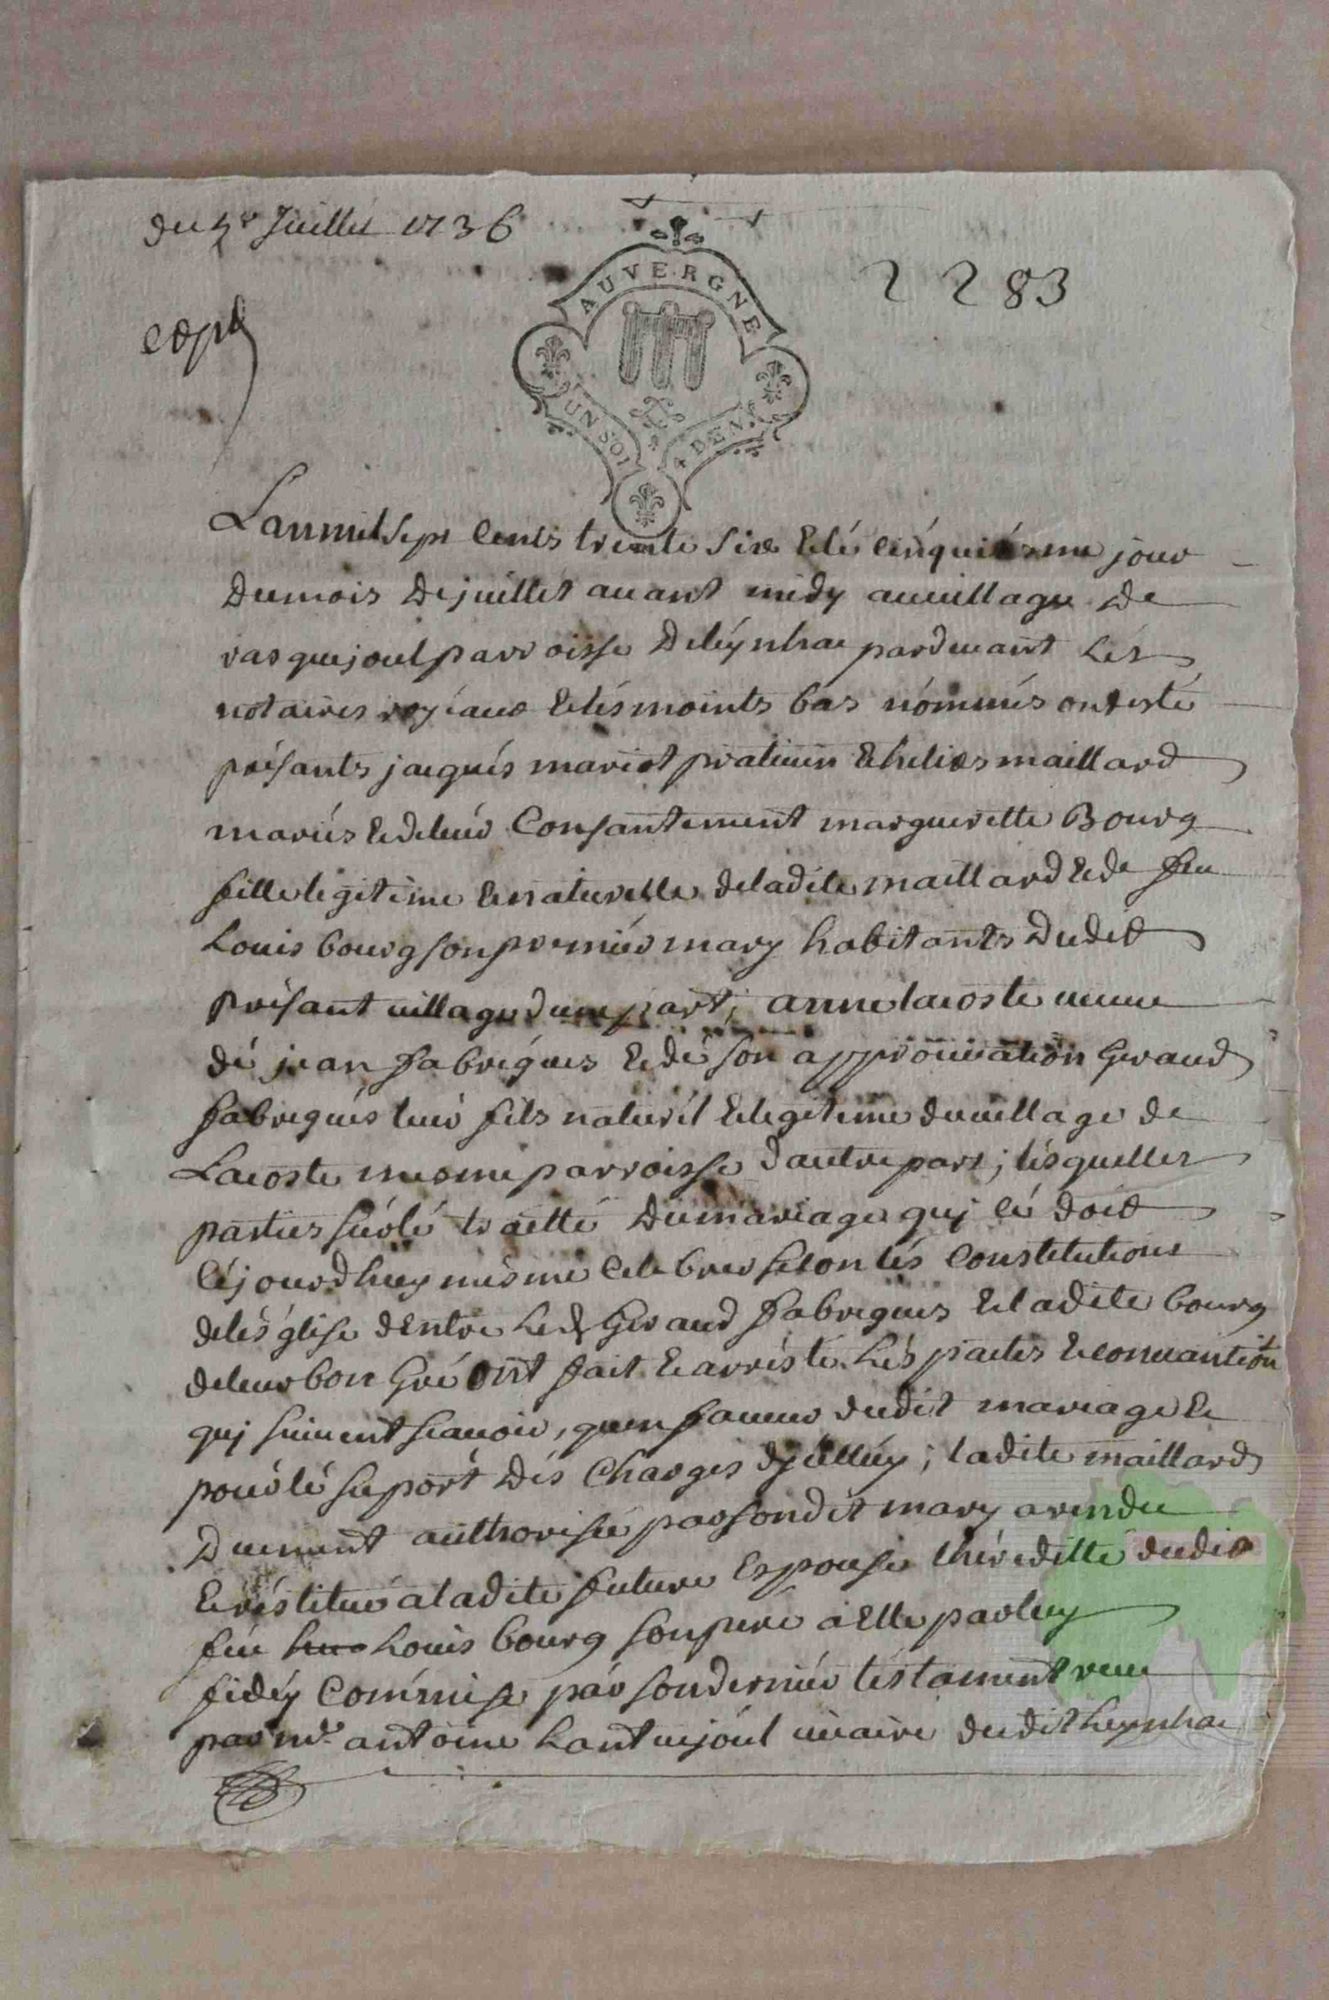 du 5e Juillet 1736
2283
expé
AUVERGNE
UN SOL 4 DEN.
Lan mil sept cents trente six & lé cinquiésme jour
du mois de juillet auant midy au uillage de
vasquejoul parroisse deléynhac pardeuant Les
notaires royéaux & tésmoints bas nómmés ont esté
présants jacqués mariot praticien & helies maillard
mariés & de leur Consantement marguerette Bourg
fille legitime & naturelle deladite maillard & de feu
Louis bourg son premiér mary habitants dudit
présant uillage dune part, anne lacoste ueuue
dé jean fabrégues & dé son approuuation Geraud
fabregués leur fils naturél & legitime du uillage de
Lacoste mesme parroisse dautre part; lésquelles
parties súr lé traitté du mariage quj cé doit
céjourdhuy mésme celebrer selon lés constitutions
deléglise dentre led Geraud fabregues & ladite bourg
de leur bon gré ont fait & arrésté Lés pactes & conuantions
quj suiuent scauoir, quen faueur dudit mariage &
pour lé suport dés Charges dycelluy; ladite maillard
Duement authorisée par son dit mary a rendu
& réstitué a ladite future Espouse lhéreditté dudit
féu Louis bourg son peré a Elle par luy
fidéy Commise pár son derniér téstament reçu
par me. antoine Lantuejóul uicaire dudit Leynhac